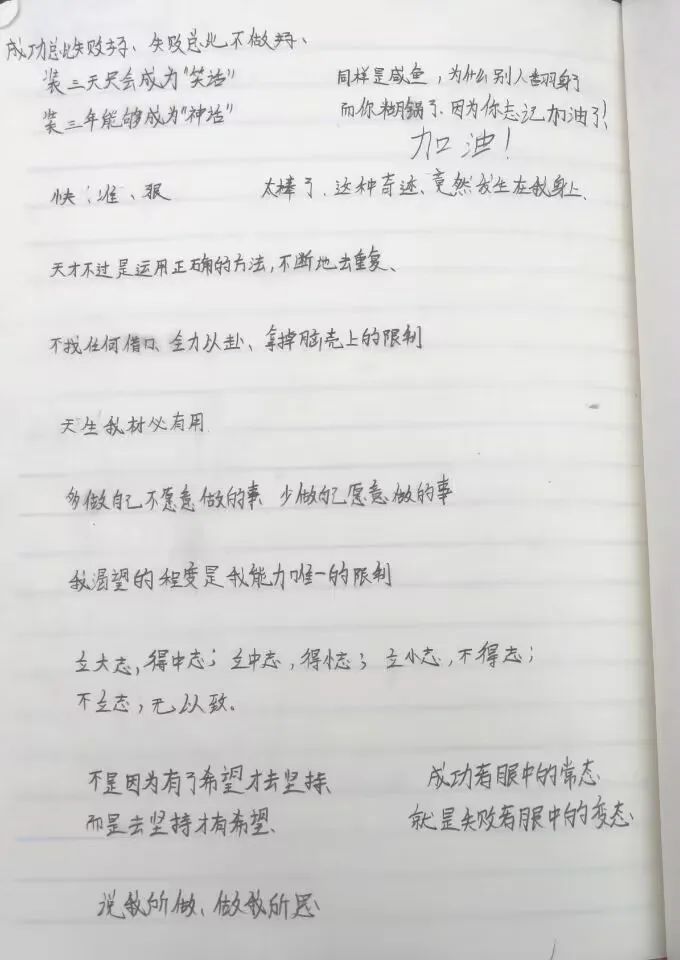 成功总比失败好、失败总比不做好、
装三天只会成为"笑话"
装三年能够成为"神话"
同样是咸鱼，为什么别人翻身了
而你糊锅了、因为你忘记加油了！
加油！
快、准、狠
太棒了、这种奇迹、竟然发生在我身上、
天才不过是运用正确的方法，不断地去重复、
不找任何借口、全力以赴、拿掉脑壳上的限制
天生我材必有用
多做自己不愿意做的事、少做自己愿意做的事
我渴望的程度是我能力唯一的限制
立大志，得中志；立中志，得小志；立小志，不得志；
不立志；无以致。
不是因为有了希望才去坚持、
而是去坚持才有希望、
成功者眼中的常态
就是失败者眼中的变态
说我所做、做我所思